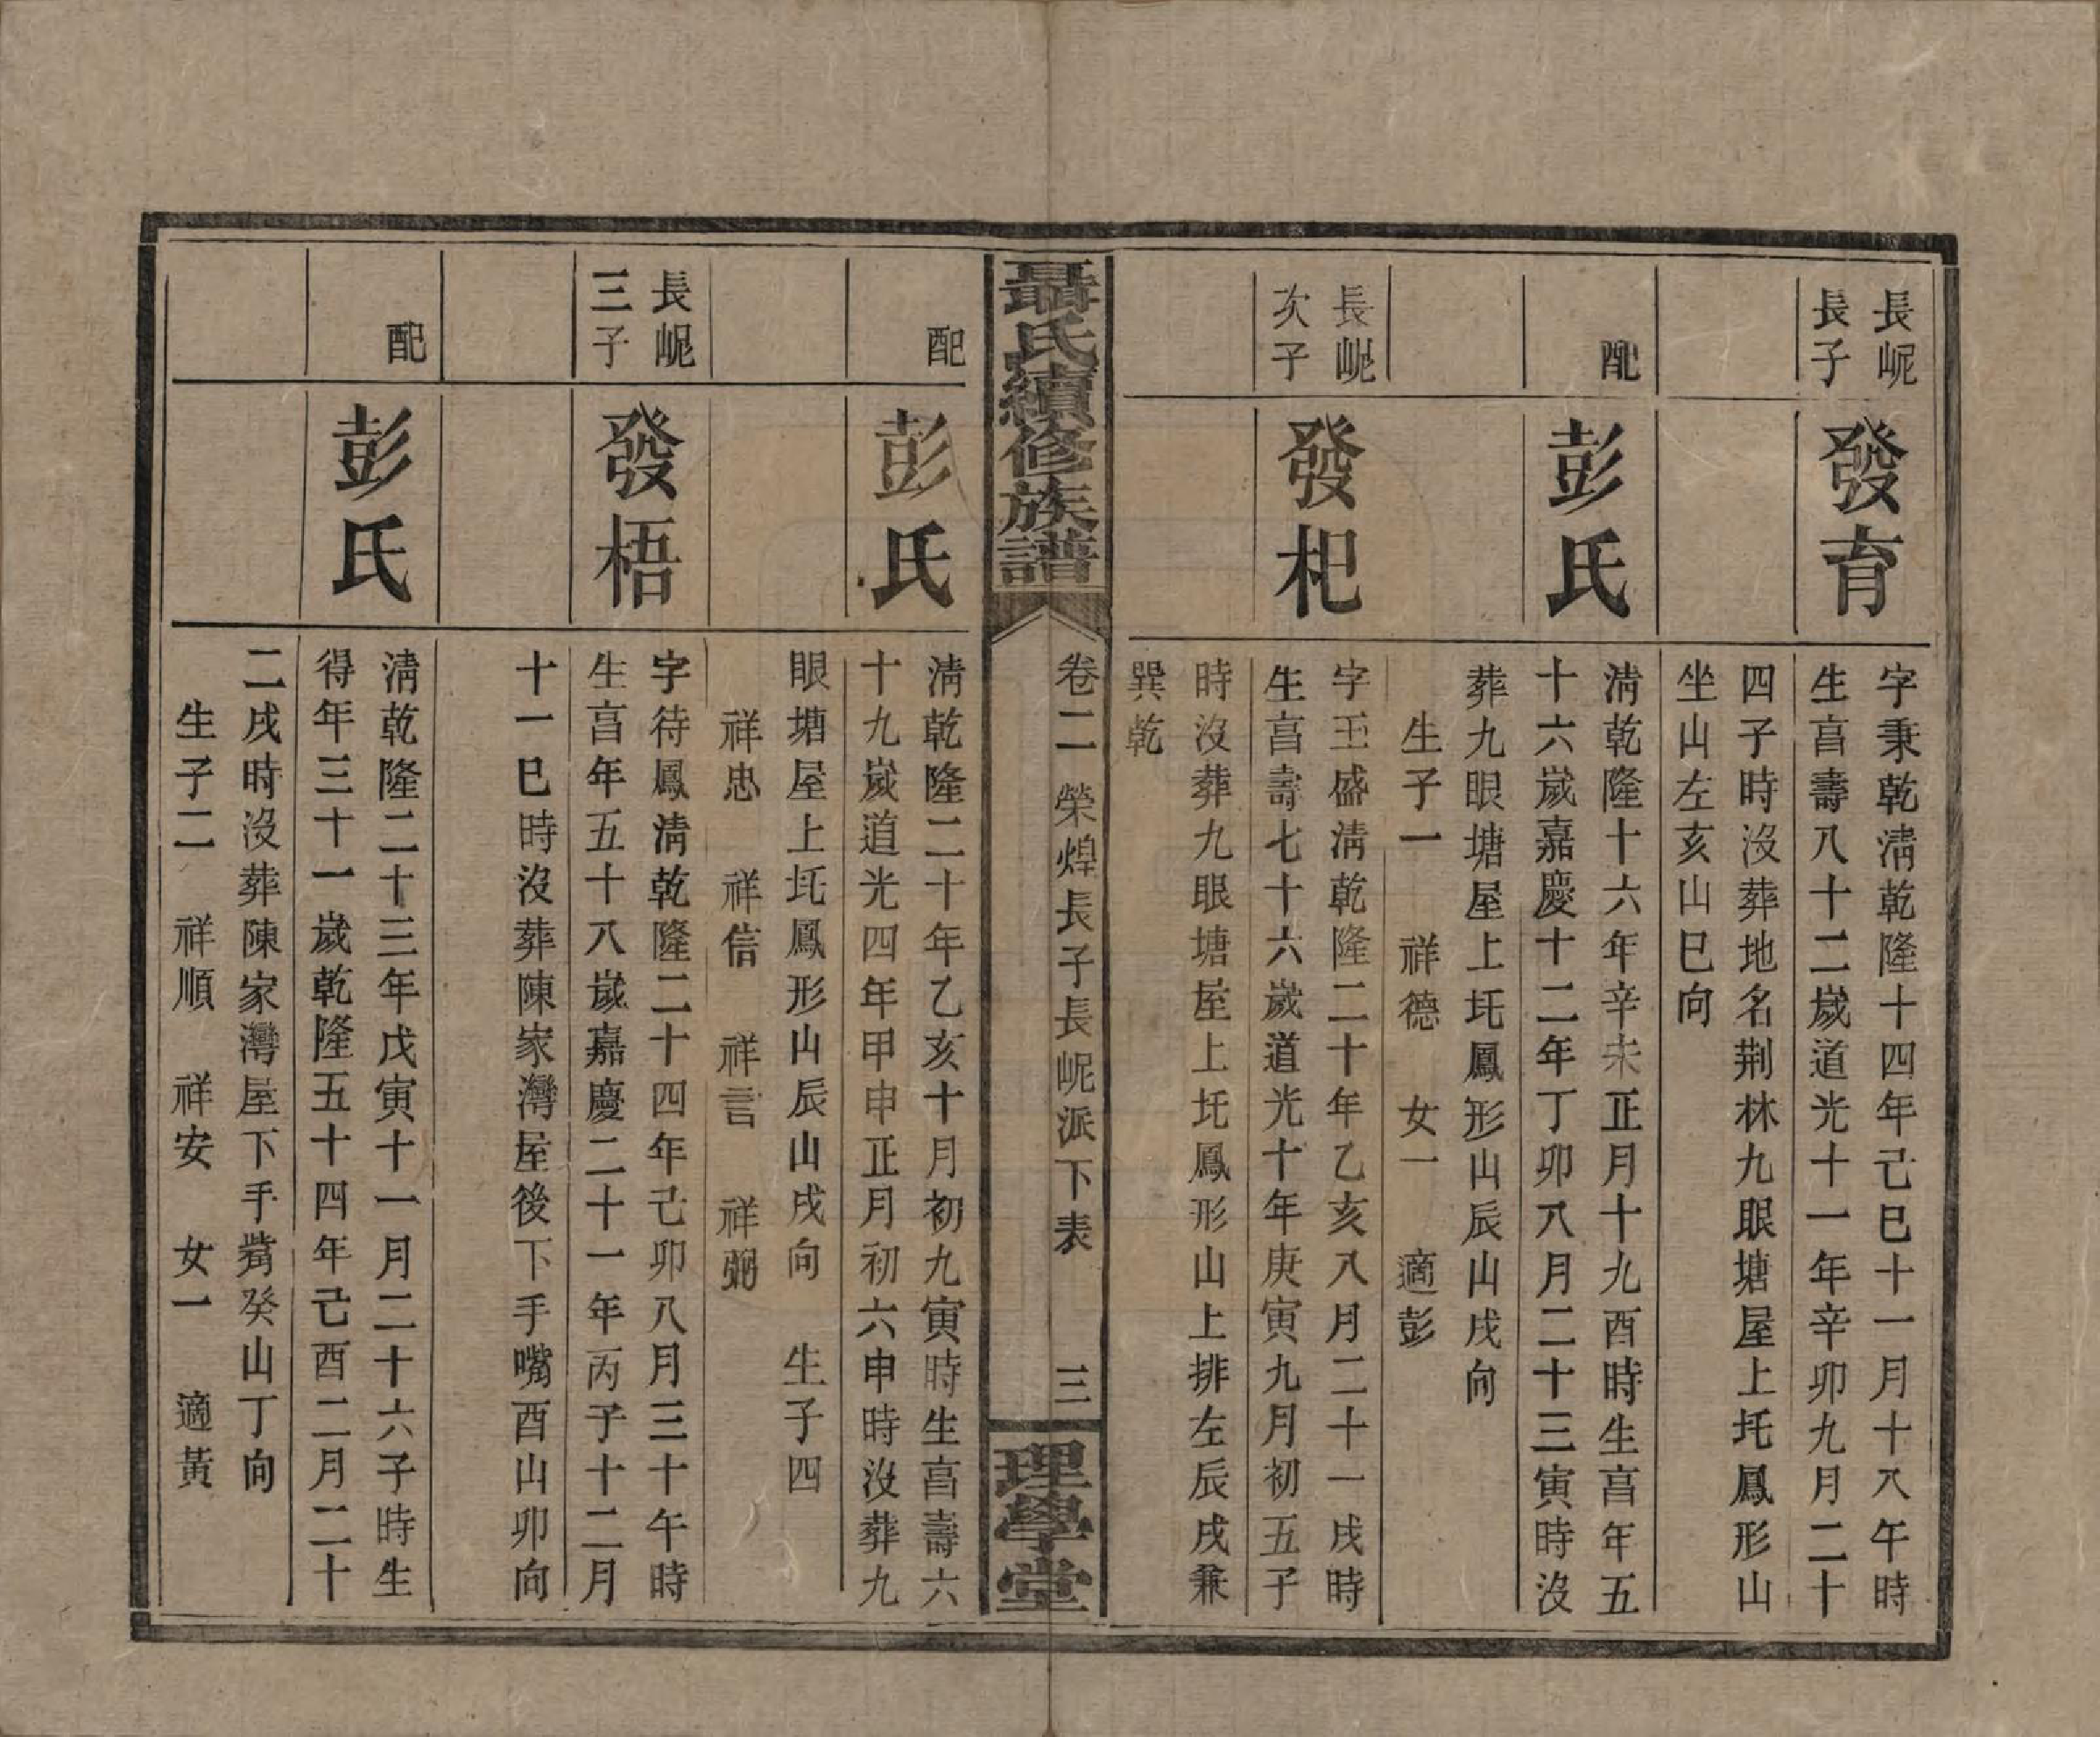 長岘
長子
發育
字秉乾淸乾隆十四年己巳十一月十八午時
生亯壽八十二歲道光十一年辛卯九月二十
四子時沒葬地名荆林九眼塘屋上圫鳳形山
坐山左亥山巳向
配
彭氏
淸乾隆十六年辛未正月十九酉時生亯年五
十六歲嘉慶十二年丁卯八月二十三寅時沒
葬九眼塘屋上圫鳳形山辰山戌向
生子一　祥德　女一　適彭
長岘
次子
發杞
字玉盛淸乾隆二十年乙亥八月二十一戌時
生亯壽七十六歲道光十年庚寅九月初五子
時沒葬九眼塘屋上圫鳳形山上排左辰戌兼
巽乾
聶氏續修族譜
卷二　榮煌長子長岘派下表　三
理學堂
配
彭氏
淸乾隆二十年乙亥十月初九寅時生亯壽六
十九歲道光四年甲申正月初六申時沒葬九
眼塘屋上圫鳳形山辰山戌向　生子四
祥忠　祥信　祥言　祥弼
長岘
三子
發梧
字待鳳淸乾隆二十四年己卯八月三十午時
生亯年五十八歲嘉慶二十一年丙子十二月
十一巳時沒葬陳家灣屋後下手嘴酉山卯向
配
彭氏
淸乾隆二十三年戊寅十一月二十六子時生
得年三十一歲乾隆五十四年己酉二月二十
二戌時沒葬陳家灣屋下手觜癸山丁向
生子二　祥順　祥安　女一　適黃